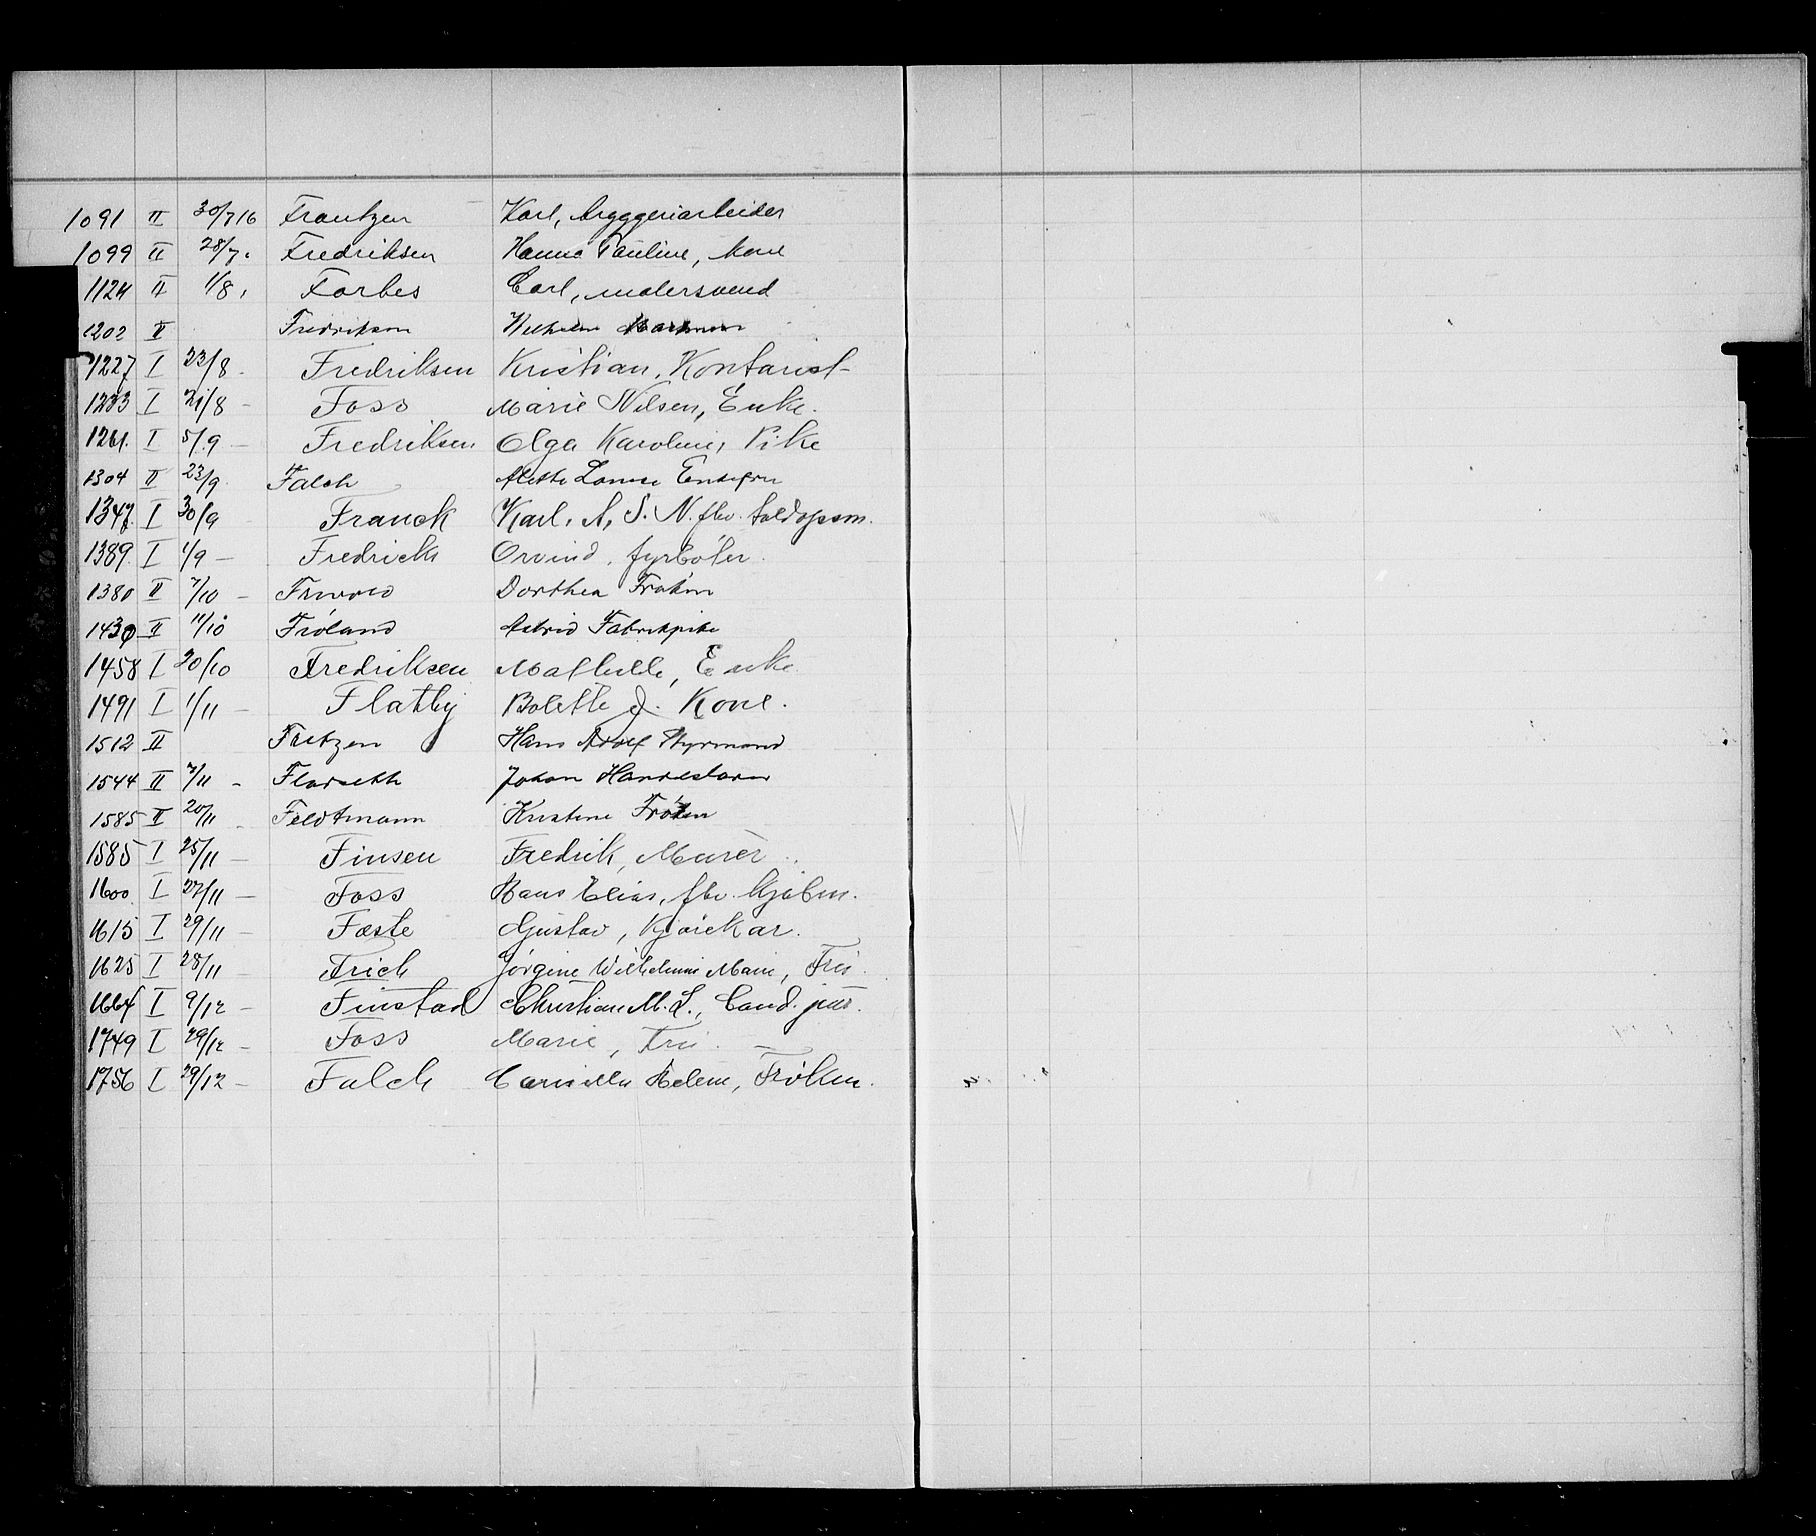 1091 II 30/7 16 Frantzen Karl, bryggeriarbeider
1099 II 28/7 " Fredriksen Hanna Pauline, kone
1124 II 1/8 " Forbes Carl, malersvend
1202 II Fredriksen Wilhelm
1227 I 23/8 - Fredriksen Kristian, Kontorist
1233 I 21/8 - Foss Marie Nilsen, Enke.
1261. I 5/9 - Fredriksen Olga Karoline, Pike
1304 II 23/9 Falch Alette Louise Enkefru
1347. I 30/9 - Franck Karl. A. S. N. fhv. toldopsm.
1389. I 1/9 - Fredrick Orvind, fyrbøter.
1380 II 7/10 - Dorthea Frøken
1430 II 11/10 Frøland Astrid Fabrikpike
1458 I 20/10 Fredriksen Mathilde, Enke
1491 I 1/11 - Flatby Bolette J. Kone.
1512 II Fritzen Hans Adolf Styrmand
1544 II 7/11 - Florseth Johan
1585 II 20/11 - Feldtmann Kristine Frøken
1585 I 25/11 - Finsen Fredrik, Murer.
1600. I 27/11 - Foss Hans Elias, fhv. kjøbm.
1615 I 29/11 - Fæste Gustav, Kjørekar.
1625 I 28/11 - Frich Jørgine Wilhelmine Marie, Fru.
1664 I 9/12 - Finstad Christian M. L., Cand. jur.
1749 I 29/12 - Foss Marie, Fru. -
1756 I 29/12 - Falch Camilla Helene, Frøken.